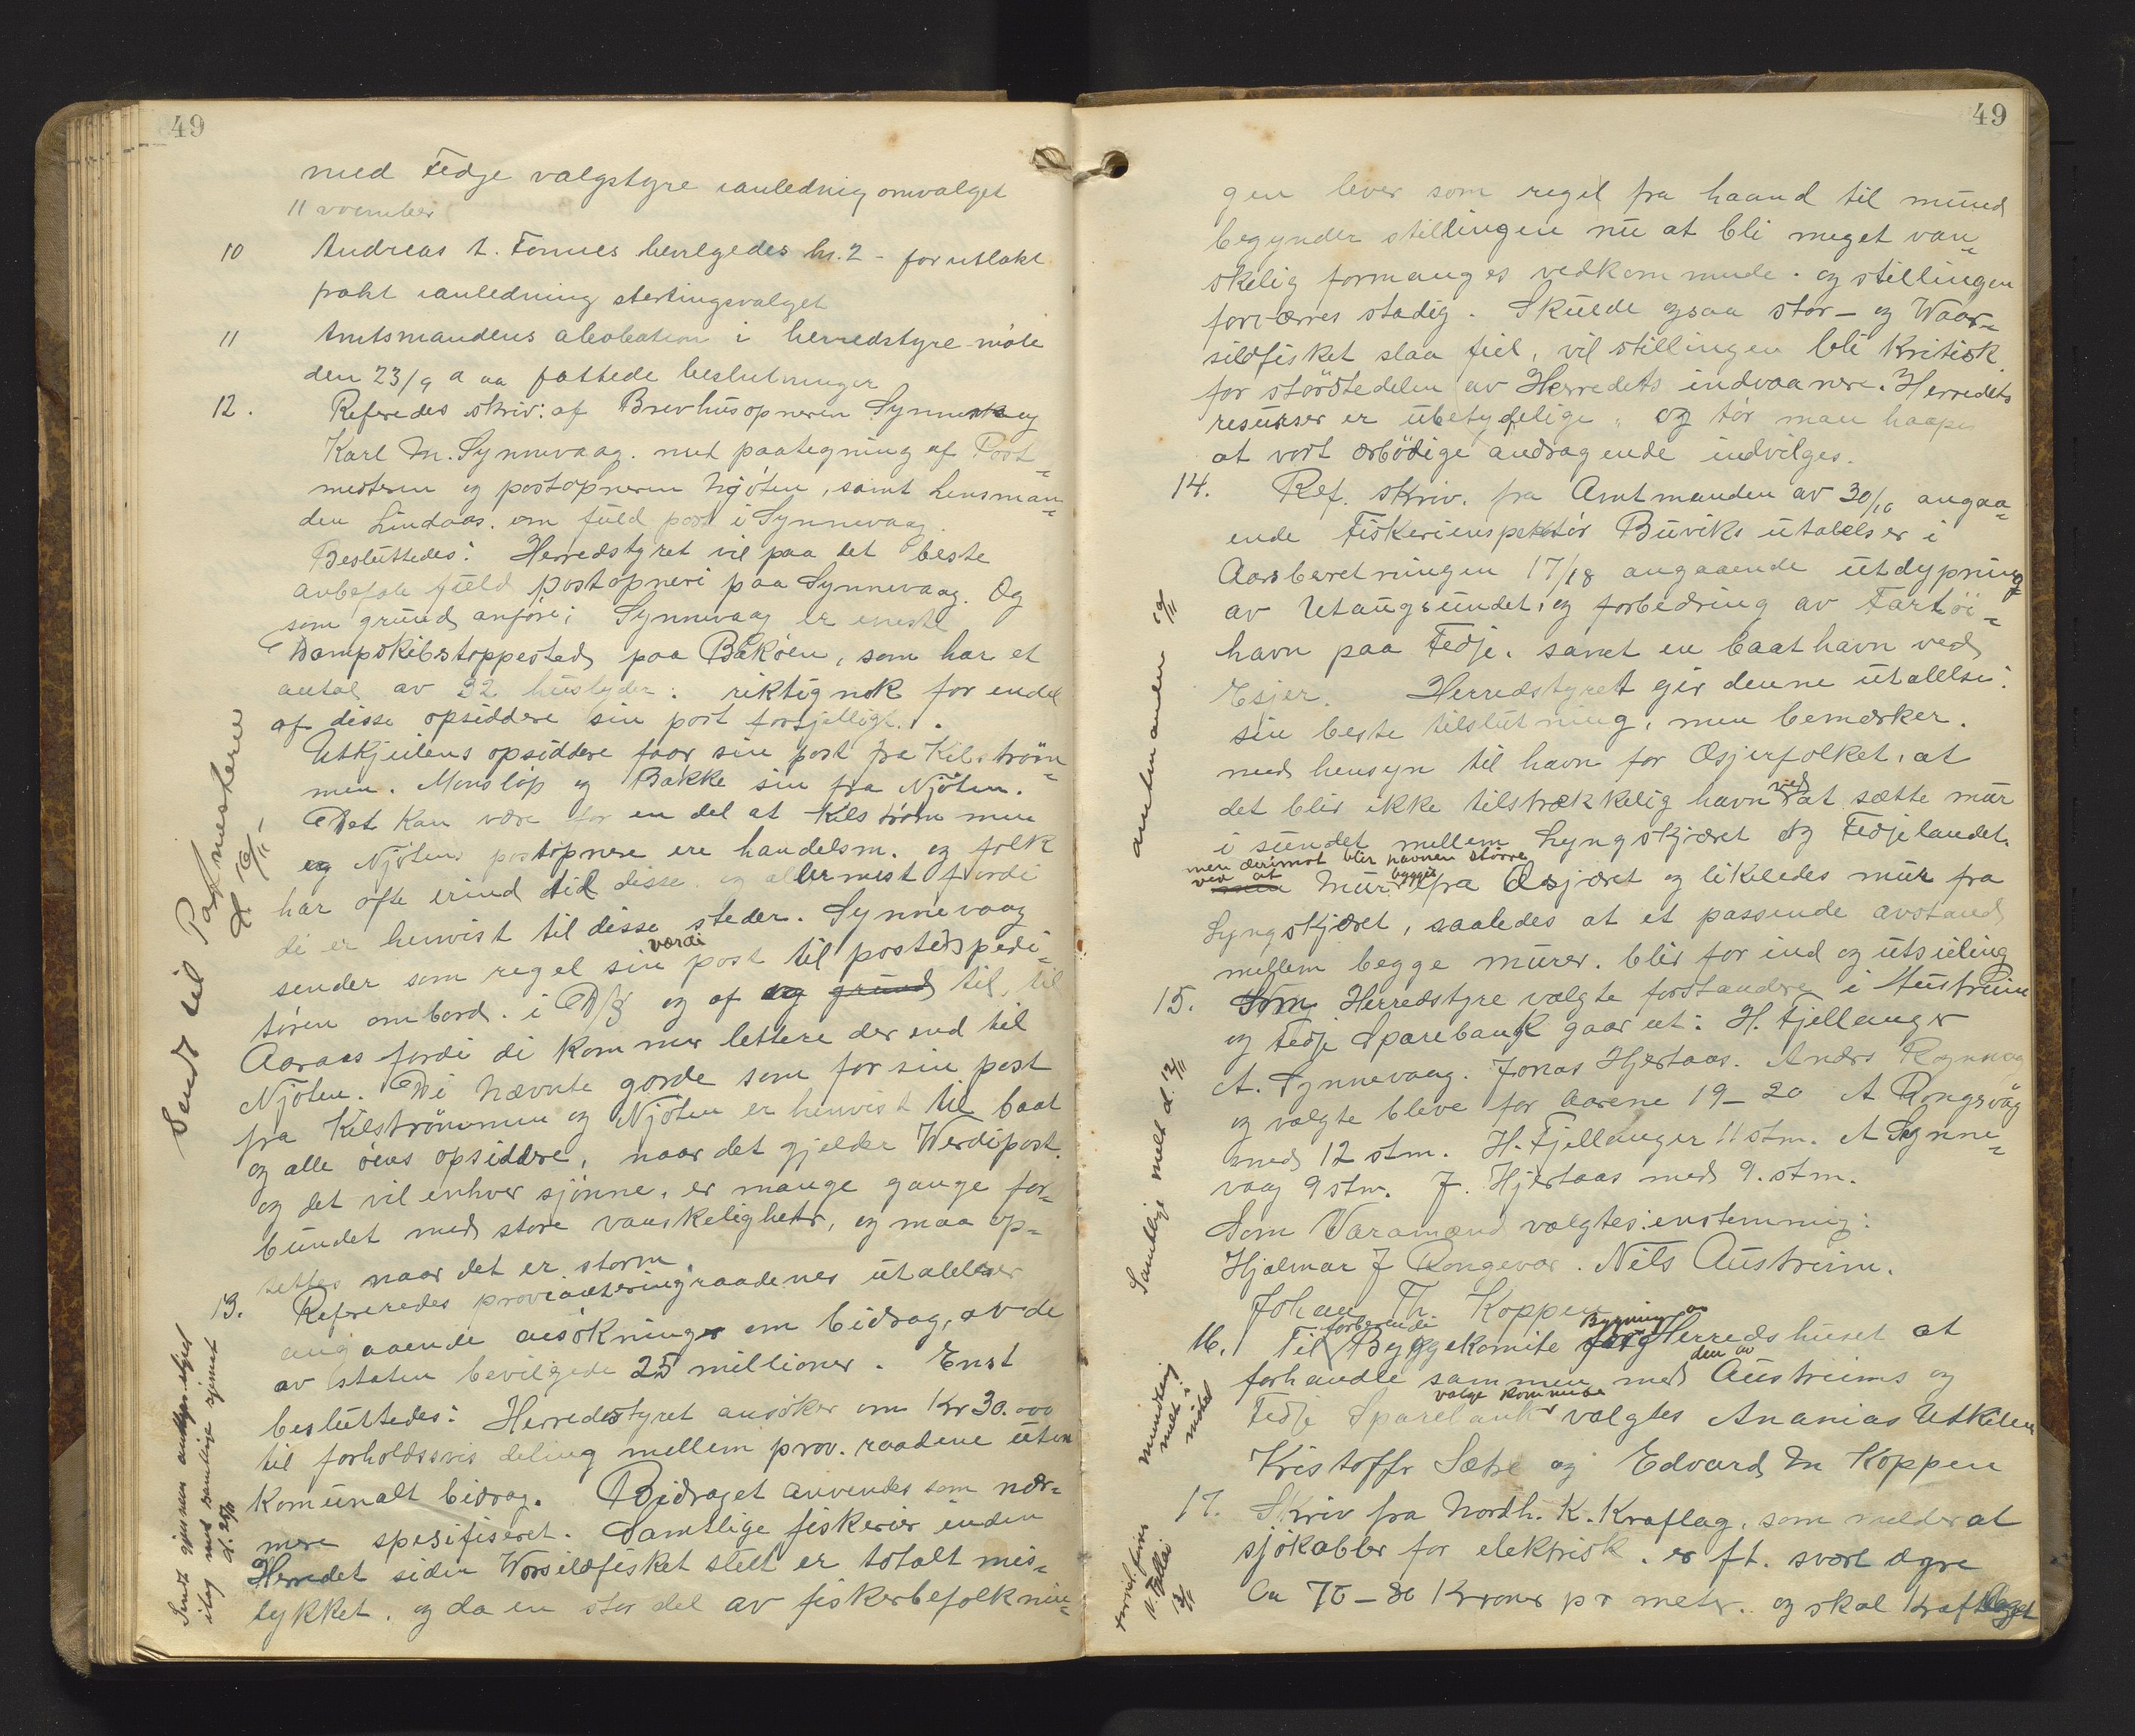 49
med Fedje valgstyre ianledning omvalget
11 november
10 Andreas A. Fonnes bevilgedes kr. 2 - for utlakt
frakt ianledning stortingsvalget
11 Amtsmandens abobation i herredstyre-møte
den 23/9 d aa fattede beslutninger
12. Referedes skriv: af Brevhusopneren Synnev og
Karl M. Synnevaag. met paategning af Post-
mesteren og postopneren Njøten, samt lensman-
den Lindaas. om fuld post i Synnevaag.
Besluttedes: Herredstyret vil paa det beste
anbefale fuld postopneri paa Synnevaag. Og
som grund anføre; Synnevaag er eneste
Dampskibstoppested paa Bakøen, som har et
antal av 32 husstyder: riktignok for endel
af disse opsiddere sin post forsjelligt..
Utkjeilens opsiddere faar sin post fra Kilstrøm-
men. Monsløp og Bakke sin fra Njøten.
Det kan være for en del at Kilstrømmen
og Njøtens postopnere ere handelsm. og folk
har ofte erind til disse. og allermest fordi
di er henvist til disse steder. Synnevaag
sender som regel sin værdi post til postexspedi-
tøren ombord. i D/S og af og grund til, til
Aaraas fordi di kommer lettere der end til
Njøten. Di nævnte gorde som for sin post
fra Kilstrømmen og Njøten er henvist til baat
og alle øens opsiddere, naar det gjelder Werdipost.
og det vil enhver sjønne, er mange gange for-
bundet med store vanskeligheter, og maa op-
settes naar det er storm.
13. Refereredes provianteringraadenes utalelser
angaaende ansökninger om bidrag, av de
av staten bevilgede 25 millioner. Enst
besluttedes: Herredstyret ansøker om Kr 30.000
til forholdssvis deling mellem prov. raadene uten
Komunalt bidrag. Bidraget anvendes som nær-
mere spesifiseret. Samtlige fiskerier inden
Herredet siden Worsildfisket slett er totalt mis-
lykket. og da en stor del av fiskerbefolknin-
Sendt til Postmesteren
d 16/11
d. 25/11
49
gen lever som regel fra haand til mund
begynder stillingen nu at bli meget van-
skelig formanges vedkommende. og stillingen
forværres stadig. Skulde ogsaa stor- og Waar-
sildfisket slaa fiel, vil stillingen bli kritisk
for størstedelen av Herredets indvaanere. Herredets
resurser er ubetydelige, og tør man haape
at vort ærbødige andragende indvilges.
14. Ref. skriv. fra Amtmanden av 30/10 angaa-
ende Fiskeriinspektør Buviks utalelser i
Aarsberetningen 17/18 angaaende utdypning
av Utangsundet, og forbedring av Fartøi-
havn paa Fedje. samt en baathavn ved
Esjer. Herredstyret gir denne utalelse:
sin beste tilslutning, men bemærker.
med hensyn til havn for Æsjerfolket, at
det blir ikke tilstrækkelig havn ved at sætte mur
i sundet mellem Lyngskjæret og Fedjelandet.
men derimot blir havnen større
ved at Mur bygges fra Æsjæret og likeledes mur fra
Lyngskjæret, saaledes at et passende avstand
mellem begge murer. blir for ind og utseiling
15. Som Herredstyre valgte forstandere i Austrheim
og Fedje Sparebank gaar ut: H. Fjellanger
A. Synnevaag. Jonas Hjertaas. Anders
og valgte bleve for aarene 19-20 A Rongsvåg
med 12 stm. H. Fjellanger 11 stm. A Synne-
vaag 9 stm. J. Hjertaas med 9. stm.
Som Varamænd valgtes: enstemmig:
Hjalmar J Rongevær. Nils Austrheim.
Johan Th. Koppen
16. Til forberende Byggekomite for Bygning av Herredshuset at
forhandle sammen med den av Austreims og
Fedje Sparebank valge kommite valgtes Ananias Utkilen
Kristoffr Sætre og Edvard M Koppen
17. Skriv fra Nordh. K. Kraflag. som melder at
sjökabler for elektrisk. er ft. svært dyre
Ca 75-80 Kroner pr meter. og skal Kraftlaget
amtmanden 19/11
Samtlige melt d. 12/11
mundtlig
melt i
møtet
13/11